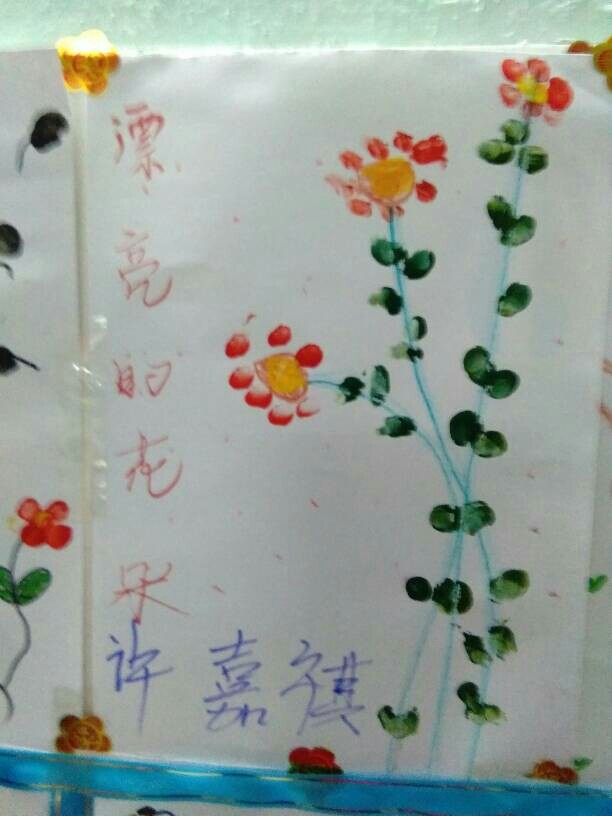 漂亮的花朵
许嘉祺